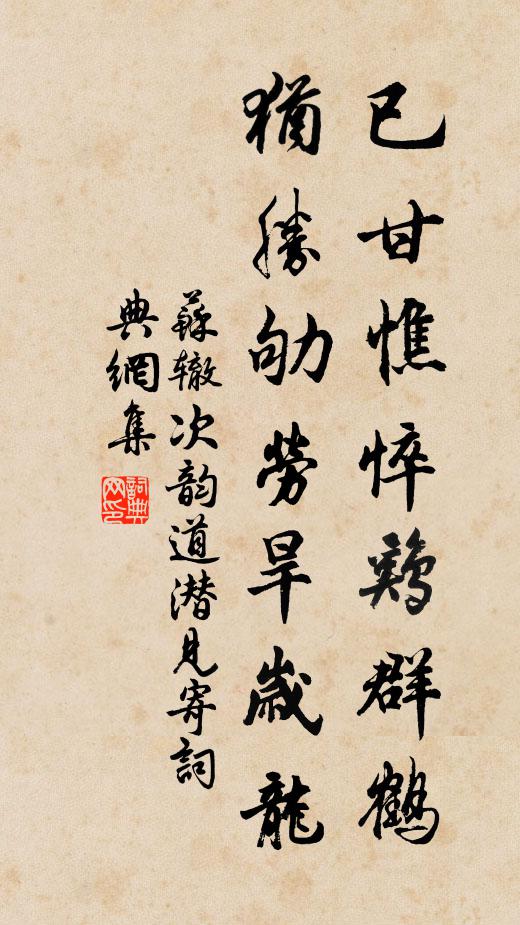 已甘憔悴鷄群鶴
猶勝劬勞旱歲龍
蘇辙次韵道潜見寄詞
典網集
詞典网印